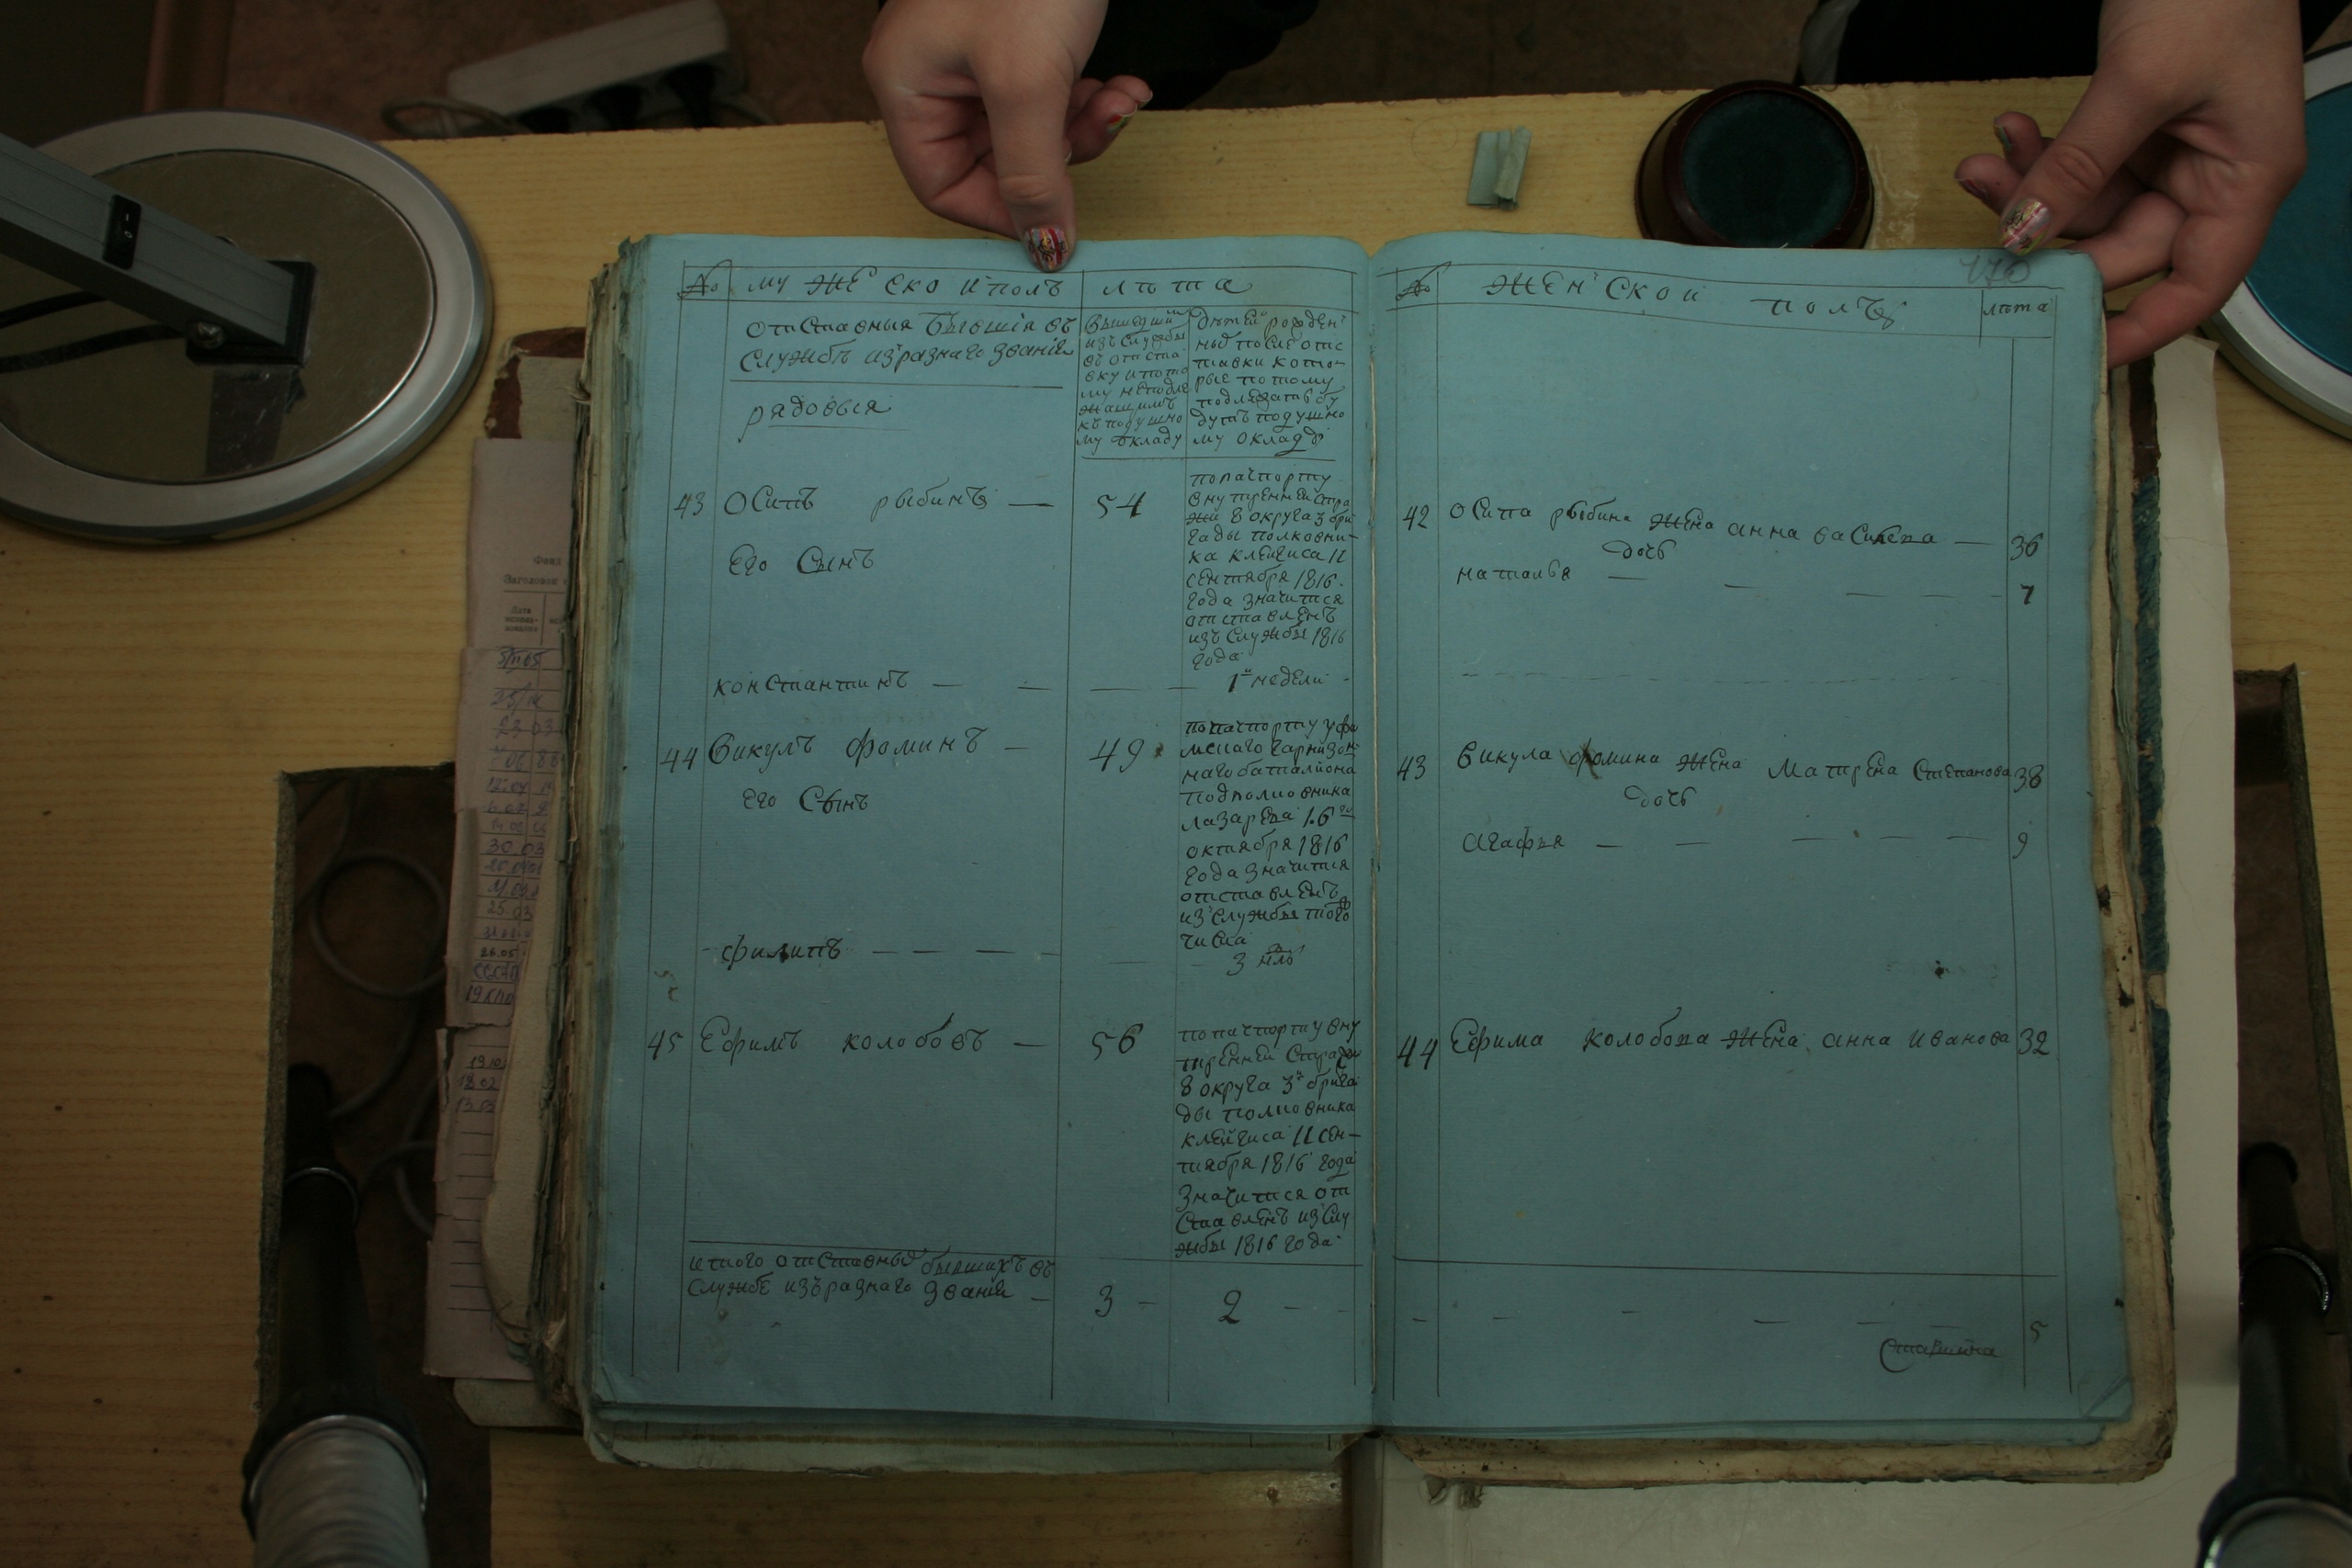 № мужеской полъ лѣта
отставныя бывшiя въ
службѣ изъ разнаго званiя
рядовыя
вышедшихъ
изъ службы
въ отста
вку и пото
му неподле
жащимъ
къ подушно
му окладу
дѣтей рожден
ныѣ после отс
тавки кото-
рые потому
подлежать бу
дутъ подушно
му окладу
43 Осипъ рыбинъ — 54
Его Сынъ
по пачпорту
внутренней стра
жи 8 округа 3 бри
гады полковни-
ка клейгиса 11
сентября 1816
года значится
отставленъ
изъ службы 1816
года
константинъ — — — — 1й недели
44 Викулъ фоминъ — 49
Его Сынъ
по пачпорту уфи
мскаго гарнизон
наго баталиона
подполковника
лазарева 16го
октября 1816
года значится
отставленъ
из службы того
числа
филипъ — — — — 3 мцо
45 Ефимъ колобовъ — 56
по пачпорту вну
тренней Стражи
8 округа 3й брига
ды полковника
клейгиса 11 сен-
тября 1816 года
Значится от
Ставленъ из Слу
жбы 1816 года
итого отставныѣ бывшихъ въ
Службе изъ разнаго званiя — 3 — 2 — -
№ женской полъ лѣта
170
42 Осипа рыбина жена анна васильева — 36
дочь
наталья — — — — 7
43 Викула фомина жена Матрена Степанова 38
дочь
агафья — — — — — 9
44 Ефима колобова жена анна иванова 32
- — — — — — 5